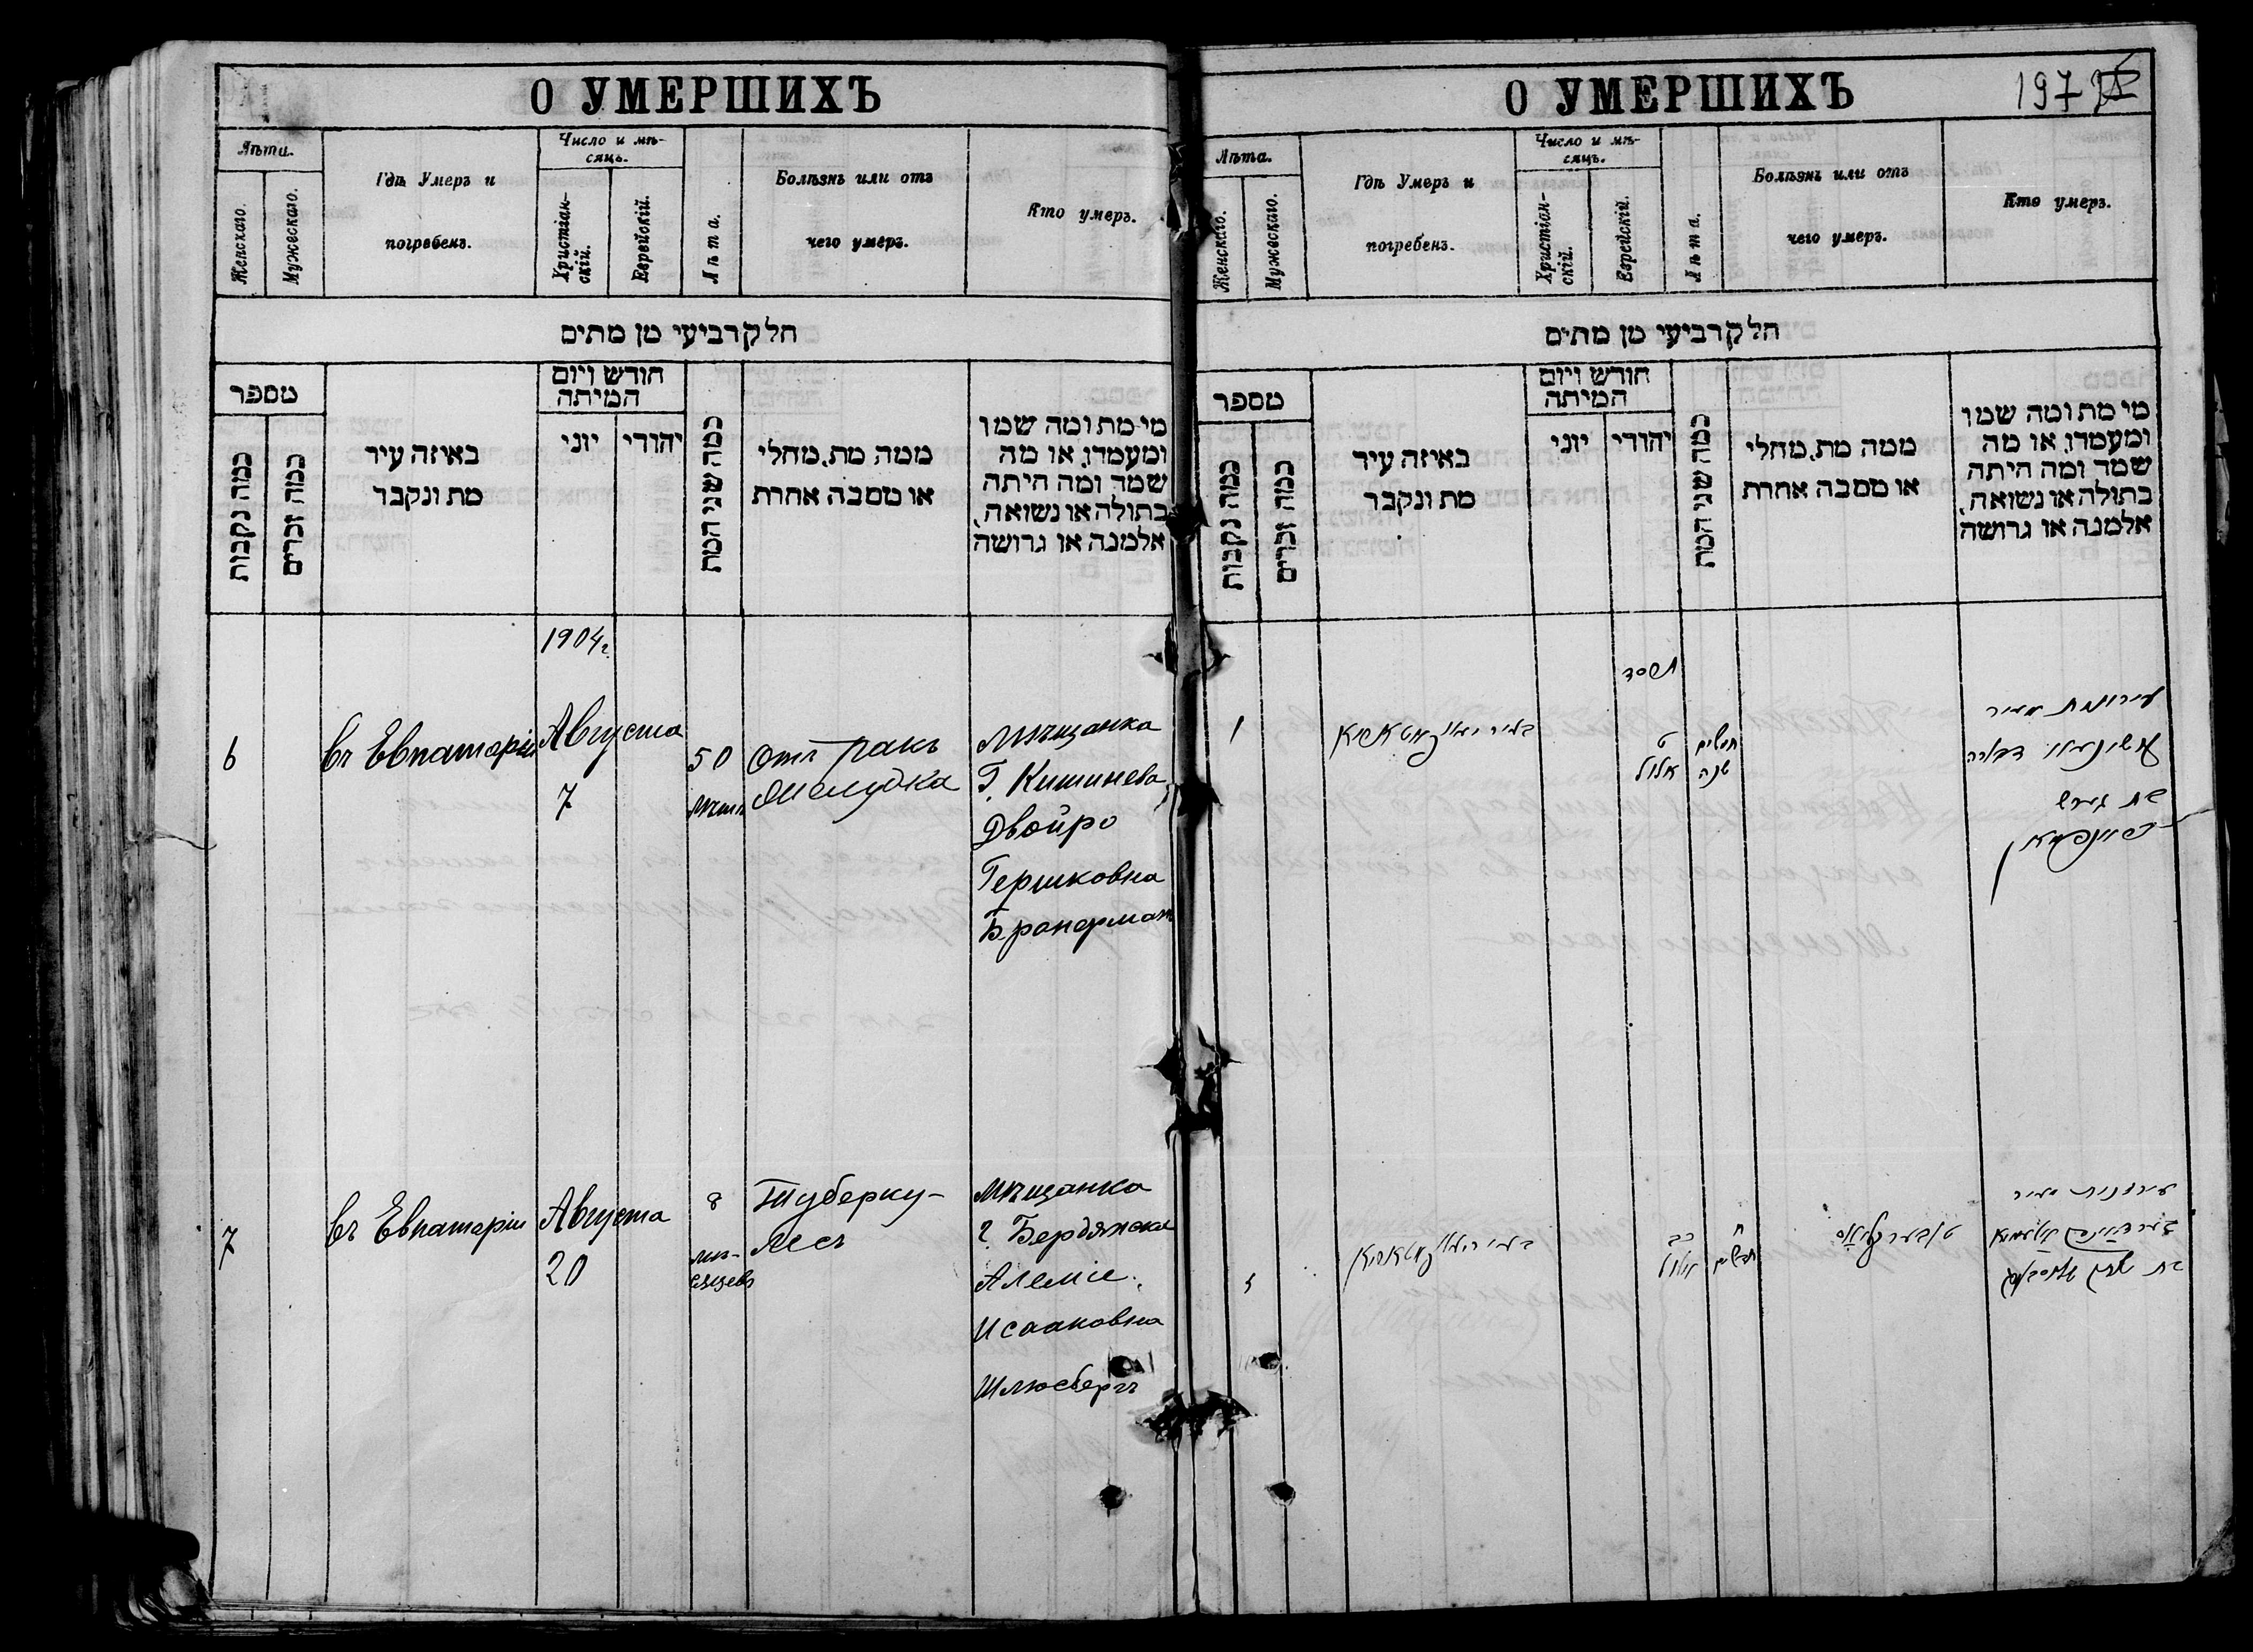 О УМЕРШИХЪ
Лѣти.
Женскаго.
Мужескаго.
Гдѣ Умеръ и
погребенъ.
Число и мѣ-
сяцъ.
Христіан-
скій.
Еврейскій.
Лѣта.
Болѣзнь или отъ
чего умеръ.
Кто умеръ.
חלק רביעי מן מתים
מספר
כמה נקבות
כמה זכרים
באיזה עיר
מת ונקבר
חודש ויום
המיתה
יוני
יהודי
כמה שני המת
ממה מת, מחלי
או מסבה אחרת
מי מת ומה שמו
ומעמדו, או מה
שמה ומה היתה
בתולה או נשואה,
אלמנה או גרושה
1904 г.
6
въ Евпаторіи
Августа
7
50
лѣтъ
Отъ ракъ
желудка
Мѣщанка
Г. Кишинева
Двойро
Гершковна
7
въ Евпаторіи
Августа
20
8
мѣ-
сяцевъ
Туберку-
лесъ
Мѣщанка
г. Бердянска
Исааковна
Шлюсбергъ
О УМЕРШИХЪ
197
Лѣта.
Женскаго.
Мужескаго.
Гдѣ Умеръ и
погребенъ.
Число и мѣ-
сяцъ.
Христіан-
скій.
Еврейскій.
Лѣта.
Болѣзнь или отъ
чего умеръ.
Кто умеръ.
חלק רביעי מן מתים
מספר
כמה נקבות
כמה זכרים
באיזה עיר
מת ונקבר
חודש ויום
המיתה
יוני
יהודי
כמה שני המת
ממה מת, מחלי
או מסבה אחרת
מי מת ומה שמו
ומעמדו, או מה
שמה ומה היתה
בתולה או נשואה,
אלמנה או גרושה
תרסד
ו
ט
אלול
חמשים
שנה
בת הערש
ז
כב
אלול
ח
חדשים